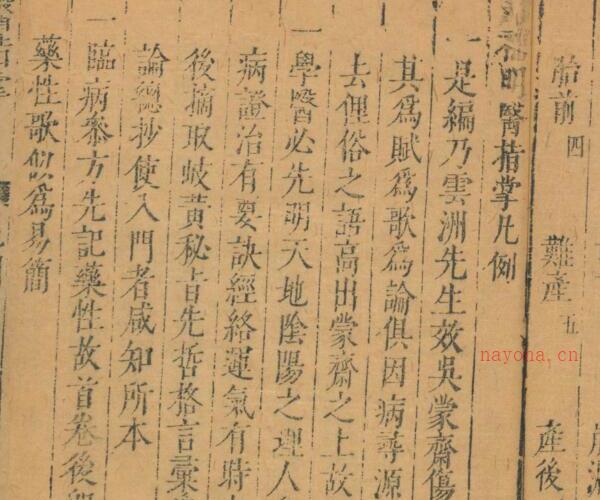 胎前 四 難產 五 產後
明醫指掌凡例
一是編乃雲洲先生效吳蒙齋傷
其爲賦爲歌爲論俱因病尋源
去俚俗之語高出蒙齋之上故
一學醫必先明天地陰陽之理人
病證治有要訣經絡運氣有時
後摘取岐黃秘旨先哲格言彙
論總抄使入門者咸知所本
一臨病叅方先記藥性故首卷後
藥性歌似爲易簡
nayona.cn